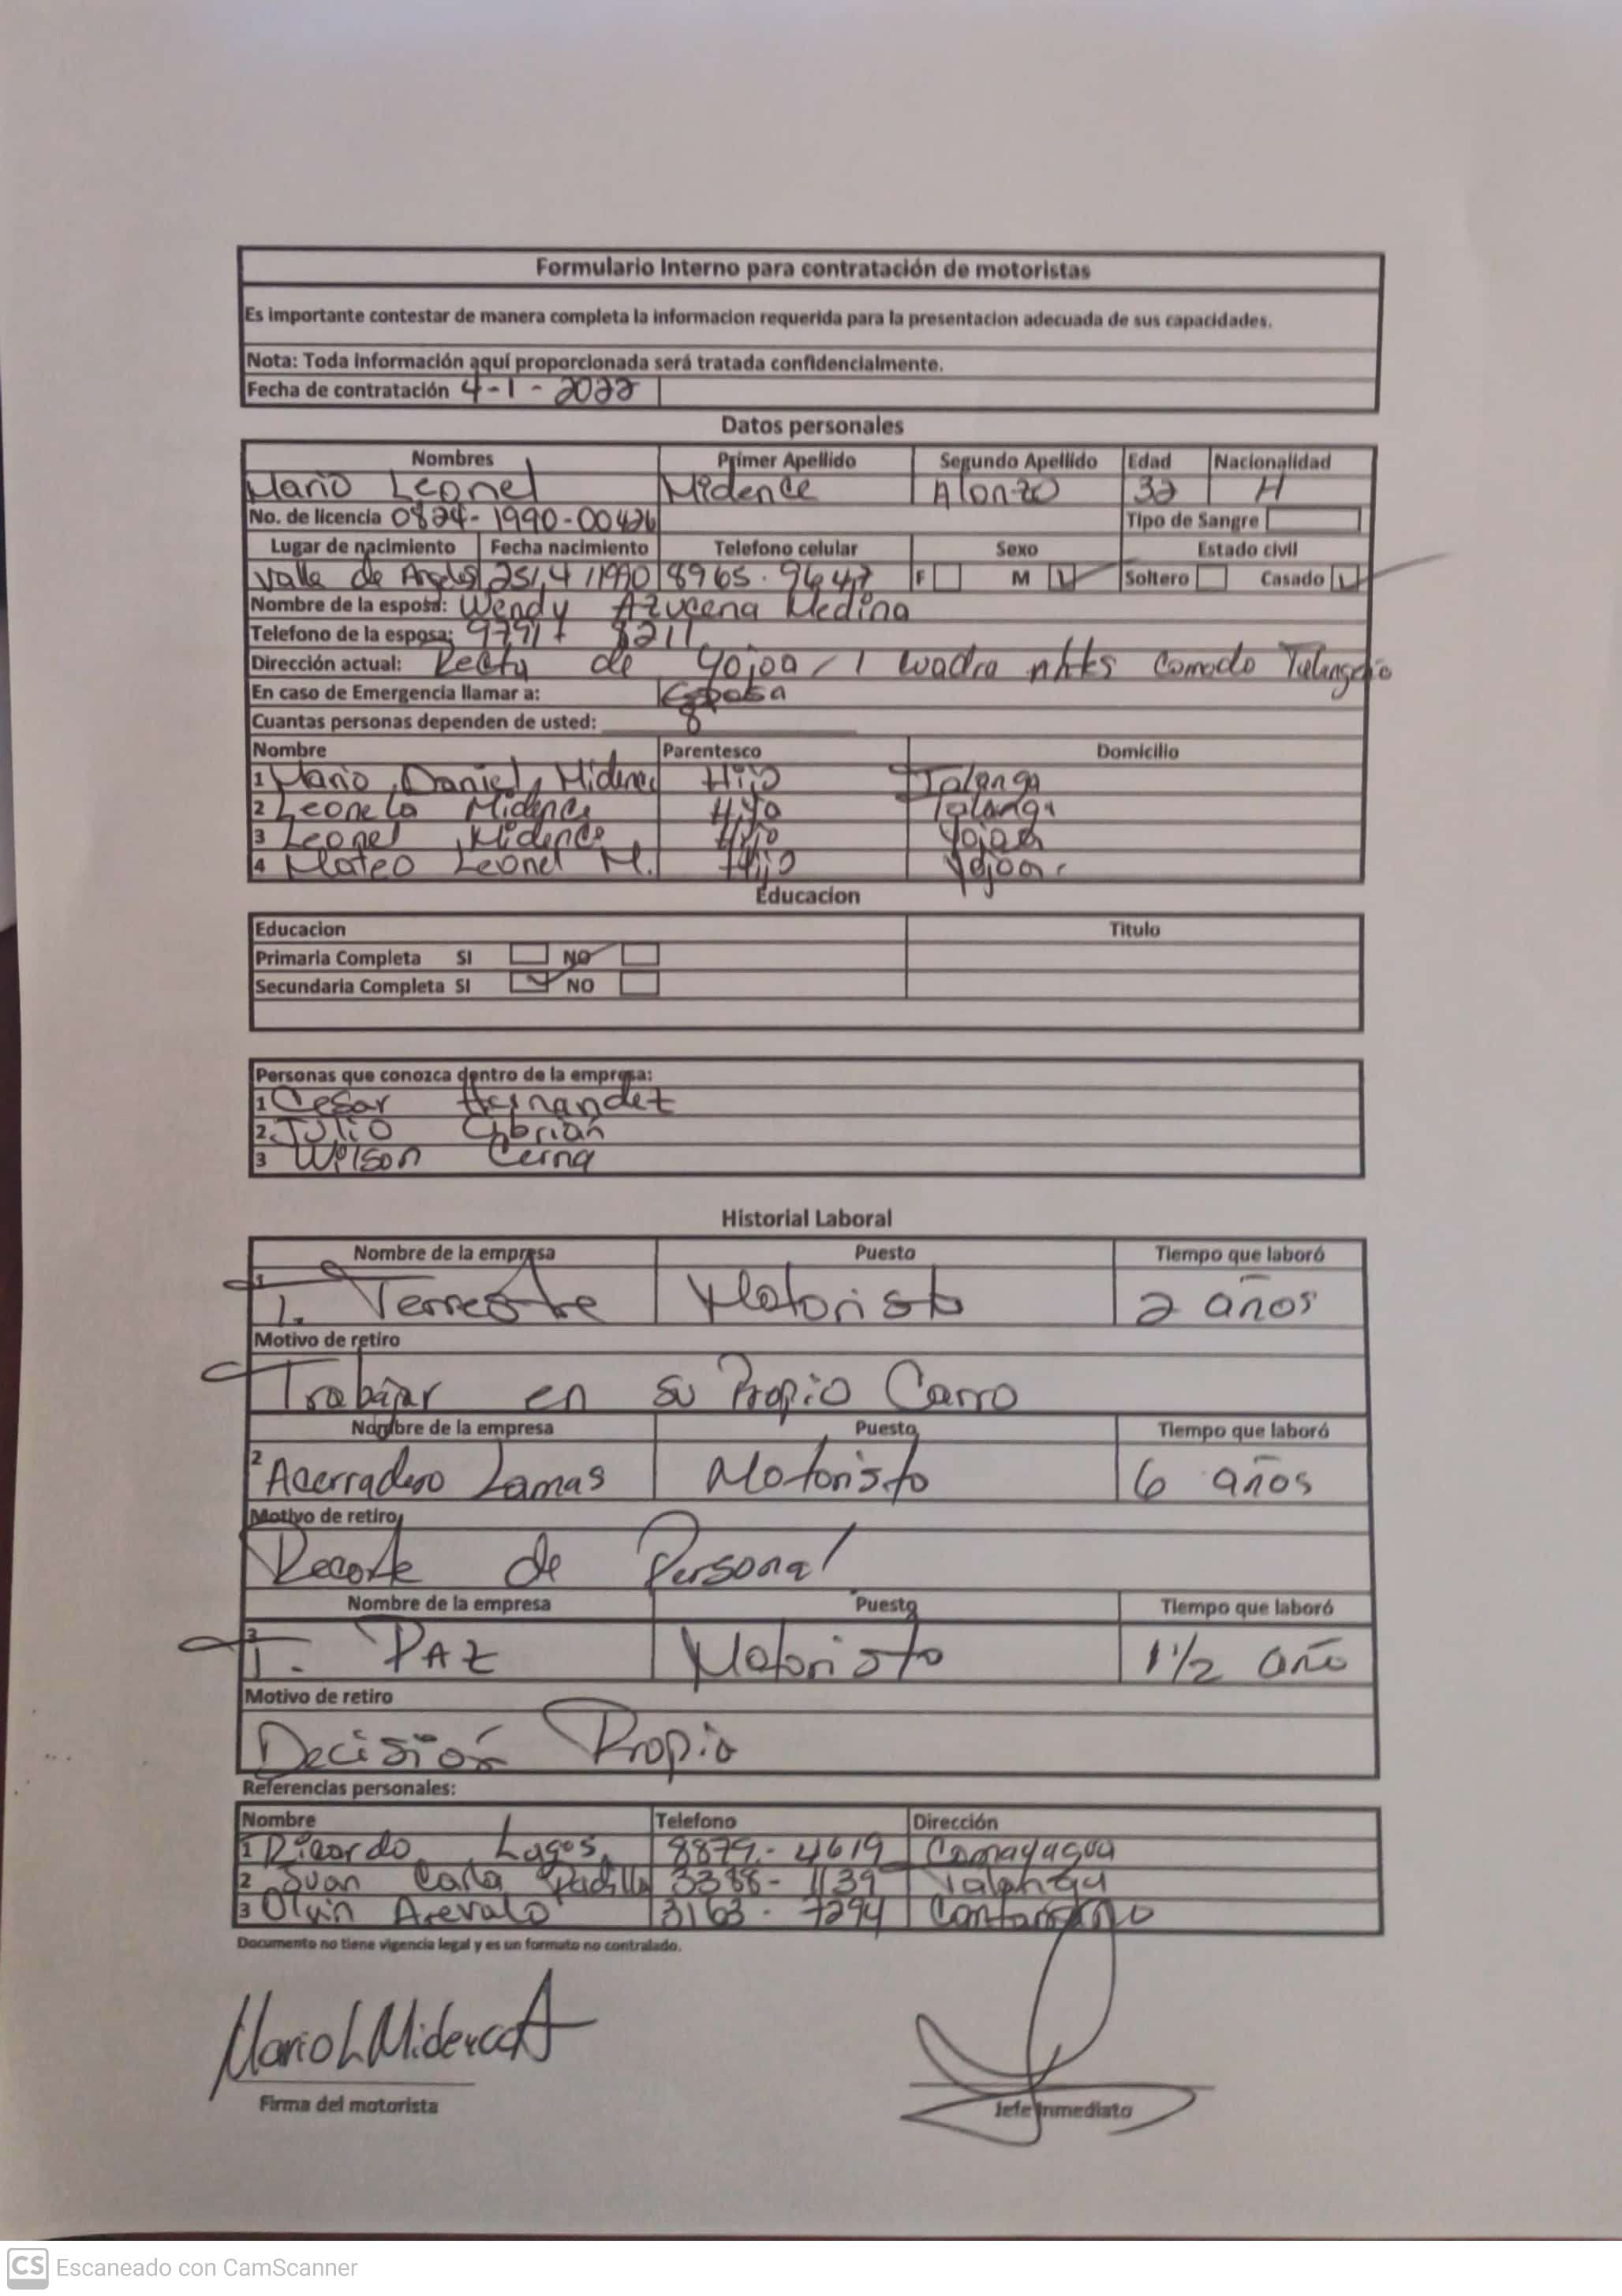 Formulario Interno para contratación de motoristas
Es importante contestar de manera completa la informacion requerida para la presentacion adecuada de sus capacidades.
Nota: Toda información aquí proporcionada será tratada confidencialmente.
Fecha de contratación 4-1-2022
Datos personales
Nombres Primer Apellido Segundo Apellido Edad Nacionalidad
Mario Leonel Midence Alonzo 32 H
No. de licencia 0824-1990-00426 Tipo de Sangre
Lugar de nacimiento Fecha nacimiento Telefono celular Sexo Estado civil
Valle de Angeles 25/4/1990 8965-9647 F M Soltero Casado
Nombre de la esposa: Wendy Azucena Medina
Telefono de la esposa: 8211
Dirección actual: Recta de Yojoa / 1 cuadra
En caso de Emergencia llamar a: Esposa
Cuantas personas dependen de usted: 8
Nombre Parentesco Domicilio
1 Mario Daniel Midence Hijo Talanga
2 Leonela Midence Hija Talanga
3 Leonel Midence Hijo Yojoa
4 Mateo Leonel M. Hijo Yojoa
Educacion
Educacion Titulo
Primaria Completa SI NO
Secundaria Completa SI NO
Personas que conozca dentro de la empresa:
1 Cesar Hernandez
2. Julio Cybrian
3 Wilson Cerna
Historial Laboral
Nombre de la empresa Puesto Tiempo que laboró
1 T. Terrestre Motorista 2 años
Motivo de retiro
Trabajar en su Propio Carro
Nombre de la empresa Puesto Tiempo que laboró
2 Acerradero Lamas Motorista 6 años
Motivo de retiro
Recorte de Personal
Nombre de la empresa Puesto Tiempo que laboró
3 T. PAZ Motorista 1 1/2 año
Motivo de retiro
Decisión Propia
Referencias personales:
Nombre Telefono Dirección
1 Ricardo Lagos 8879-4619 Comayagua
2 Juan Carlo Padilla 3388-1139 Talanga
3 Olvin Arevalo 3163-7294
Documento no tiene vigencia legal y es un formato no contralado.
Mario L Midence A
Firma del motorista Jefe Inmediato
CS Escaneado con CamScanner